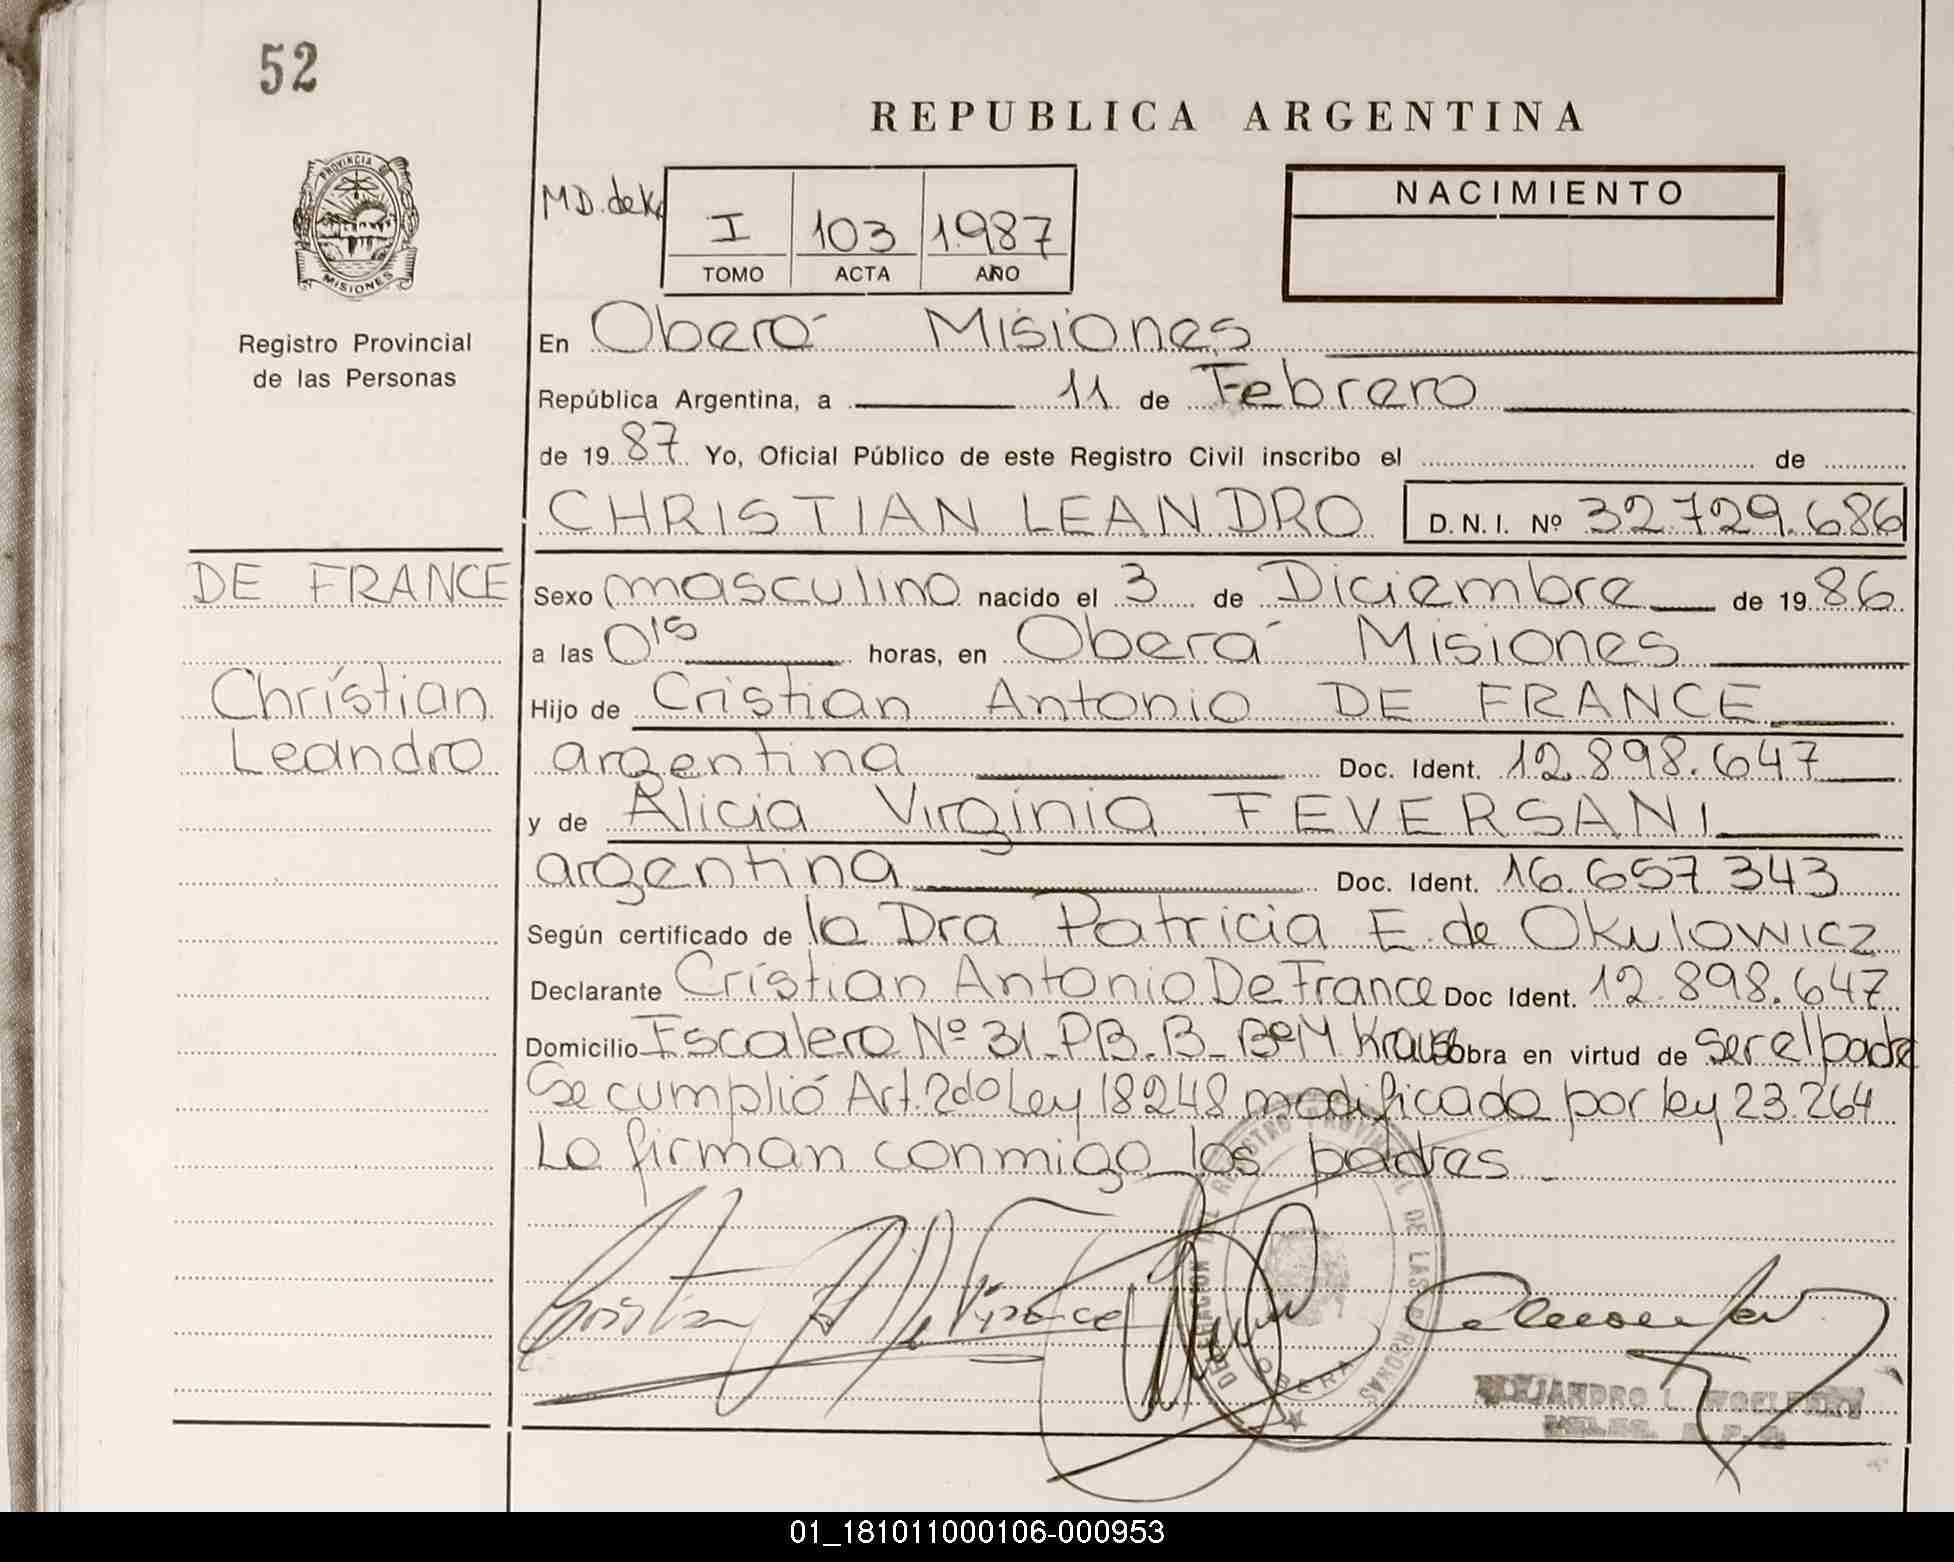 52
REPUBLICA ARGENTINA
PROVINCIA DE
MISIONES
Registro Provincial
de las Personas
MD. de K.
I 103 1987
TOMO ACTA AÑO
NACIMIENTO
En Oberá Misiones
República Argentina, a 11 de Febrero
de 1987 Yo, Oficial Público de este Registro Civil inscribo el de
CHRISTIAN LEANDRO D.N.I. Nº 32.729.686
DE FRANCE
Christian
Leandro
Sexo masculino nacido el 3 de Diciembre de 1986
a las 0'15 horas, en Oberá Misiones
Hijo de Cristian Antonio DE FRANCE
argentina Doc. Ident. 12.898.647
y de Alicia Virginia FEVERSANI
argentina Doc. Ident. 16.657.343
Según certificado de la Dra Patricia E. de Okulowicz
Declarante Cristian Antonio De France Doc Ident. 12.898.647
Domicilio Escalera Nº 31-PB.B-Bº M Krauss obra en virtud de ser el padre
Se cumplió Art. 2do Ley 18248 modificada por ley 23.264
Lo firman conmigo los padres
DELEGACION DEL REGISTRO PROVINCIAL DE LAS PERSONAS
OBERA
01_181011000106-000953